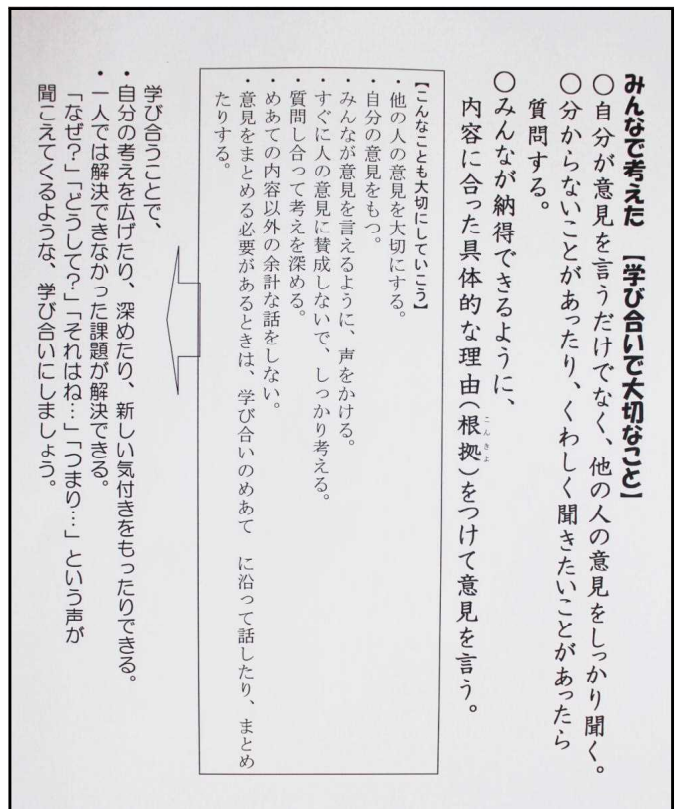 みんなで考えた 【学び合いで大切なこと】
○自分が意見を言うだけでなく、他の人の意見をしっかり聞く。
○分からないことがあったり、くわしく聞きたいことがあったら
質問する。
○みんなが納得できるように、
内容に合った具体的な理由(根拠)をつけて意見を言う。
こんきょ
【こんなことも大切にしていこう】
・他の人の意見を大切にする。
・自分の意見をもつ。
・みんなが意見を言えるように、声をかける。
・すぐに人の意見に賛成しないで、しっかり考える。
・質問し合って考えを深める。
・めあての内容以外の余計な話をしない。
・意見をまとめる必要があるときは、学び合いのめあて に沿って話したり、まとめ
たりする。
学び合うことで、
・自分の考えを広げたり、深めたり、新しい気付きをもったりできる。
・一人では解決できなかった課題が解決できる。
「なぜ?」「どうして?」「それはね…」「つまり…」という声が
聞こえてくるような、学び合いにしましょう。